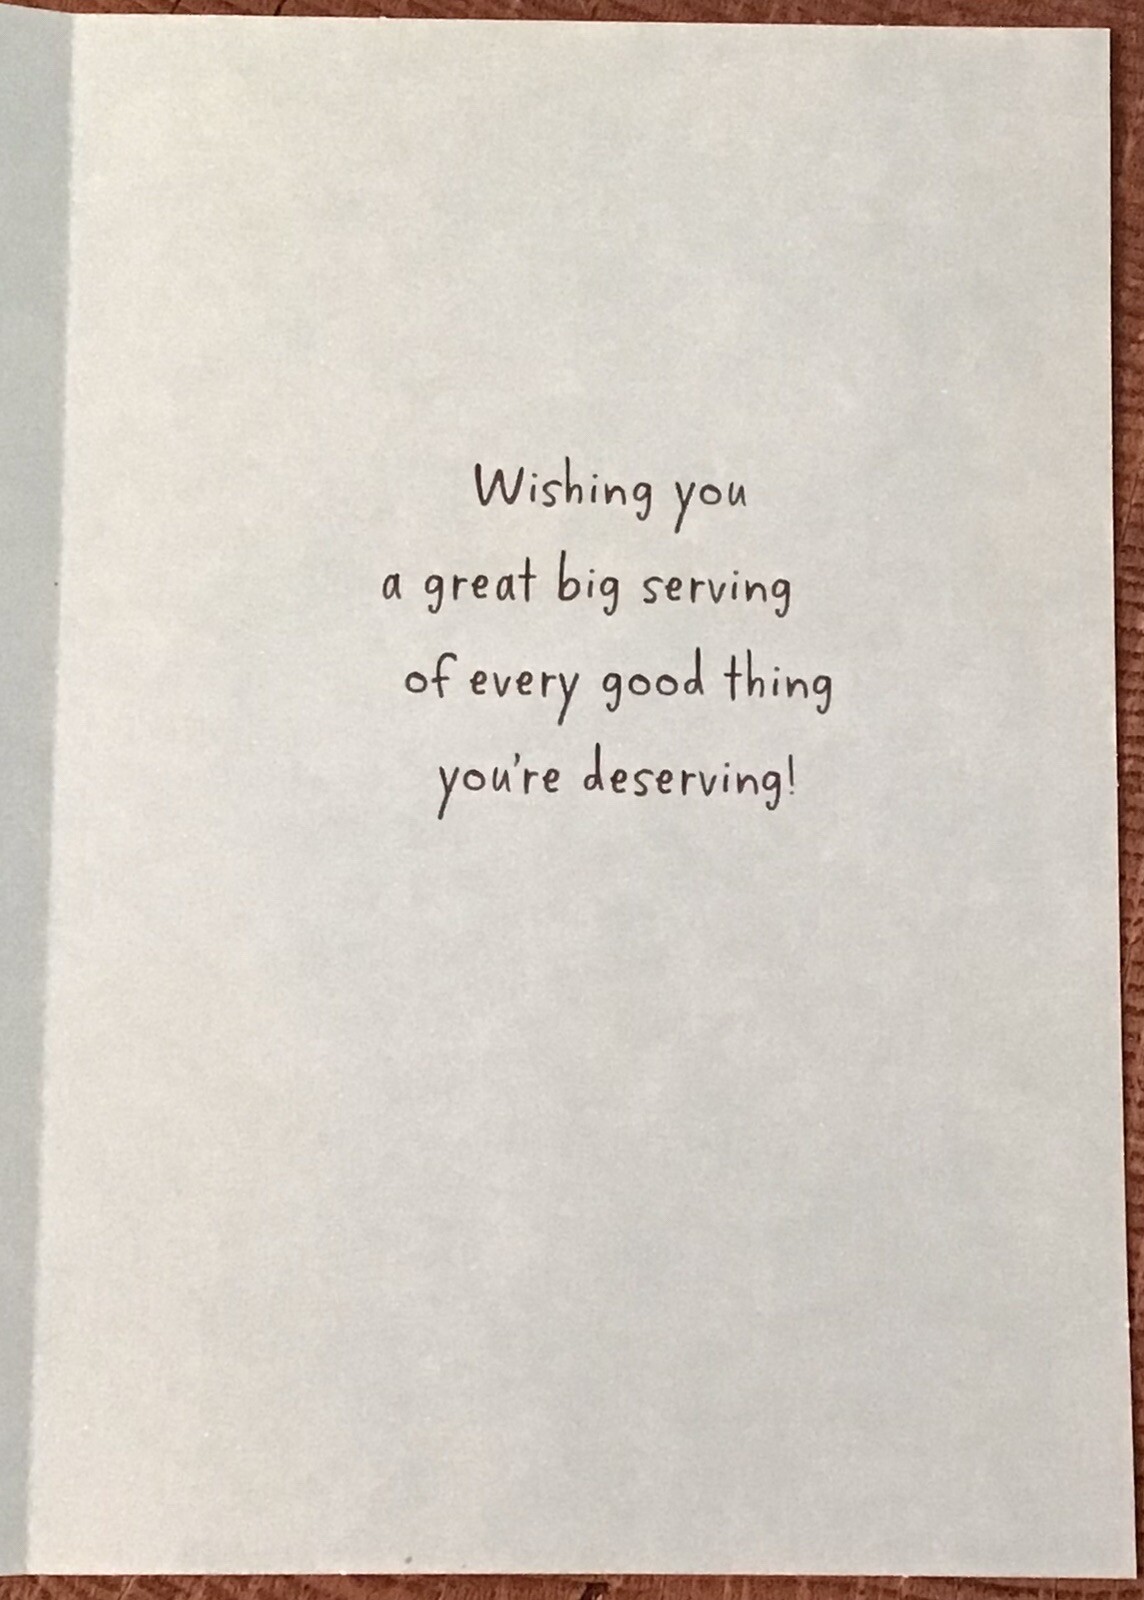 Wishing you
a great big serving
of every good thing
you're deserving!